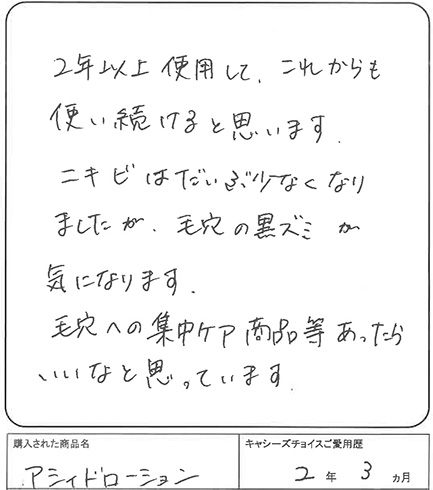 2年以上 使用して、これからも
使い続けると思います.
ニキビはだいぶ少なくなり
ましたが、毛穴の黒ズミが
気になります.
毛穴への集中ケア商品等あったら
いいなと思っています.
購入された商品名
キャシーズチョイスご愛用歴
アシィドローション
2年3ヵ月